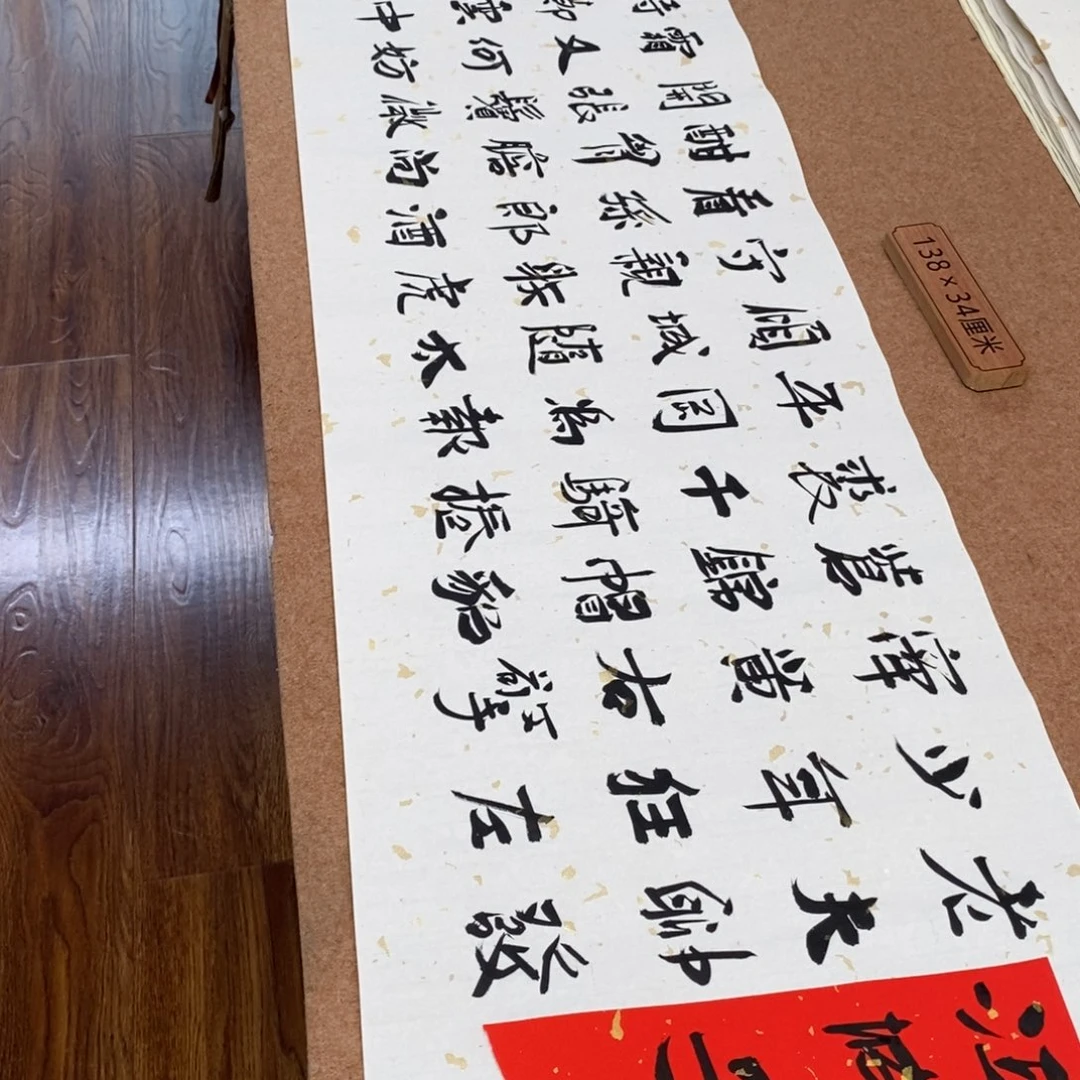 老夫聊發
少年狂左
牽黃右擎
蒼錦帽貂
裘千騎捲
平岡為報
傾城隨太
守親射虎
看孫郎酒
酣胸膽尚
開張鬢微
霜又何妨
持節雲中
138×34厘米